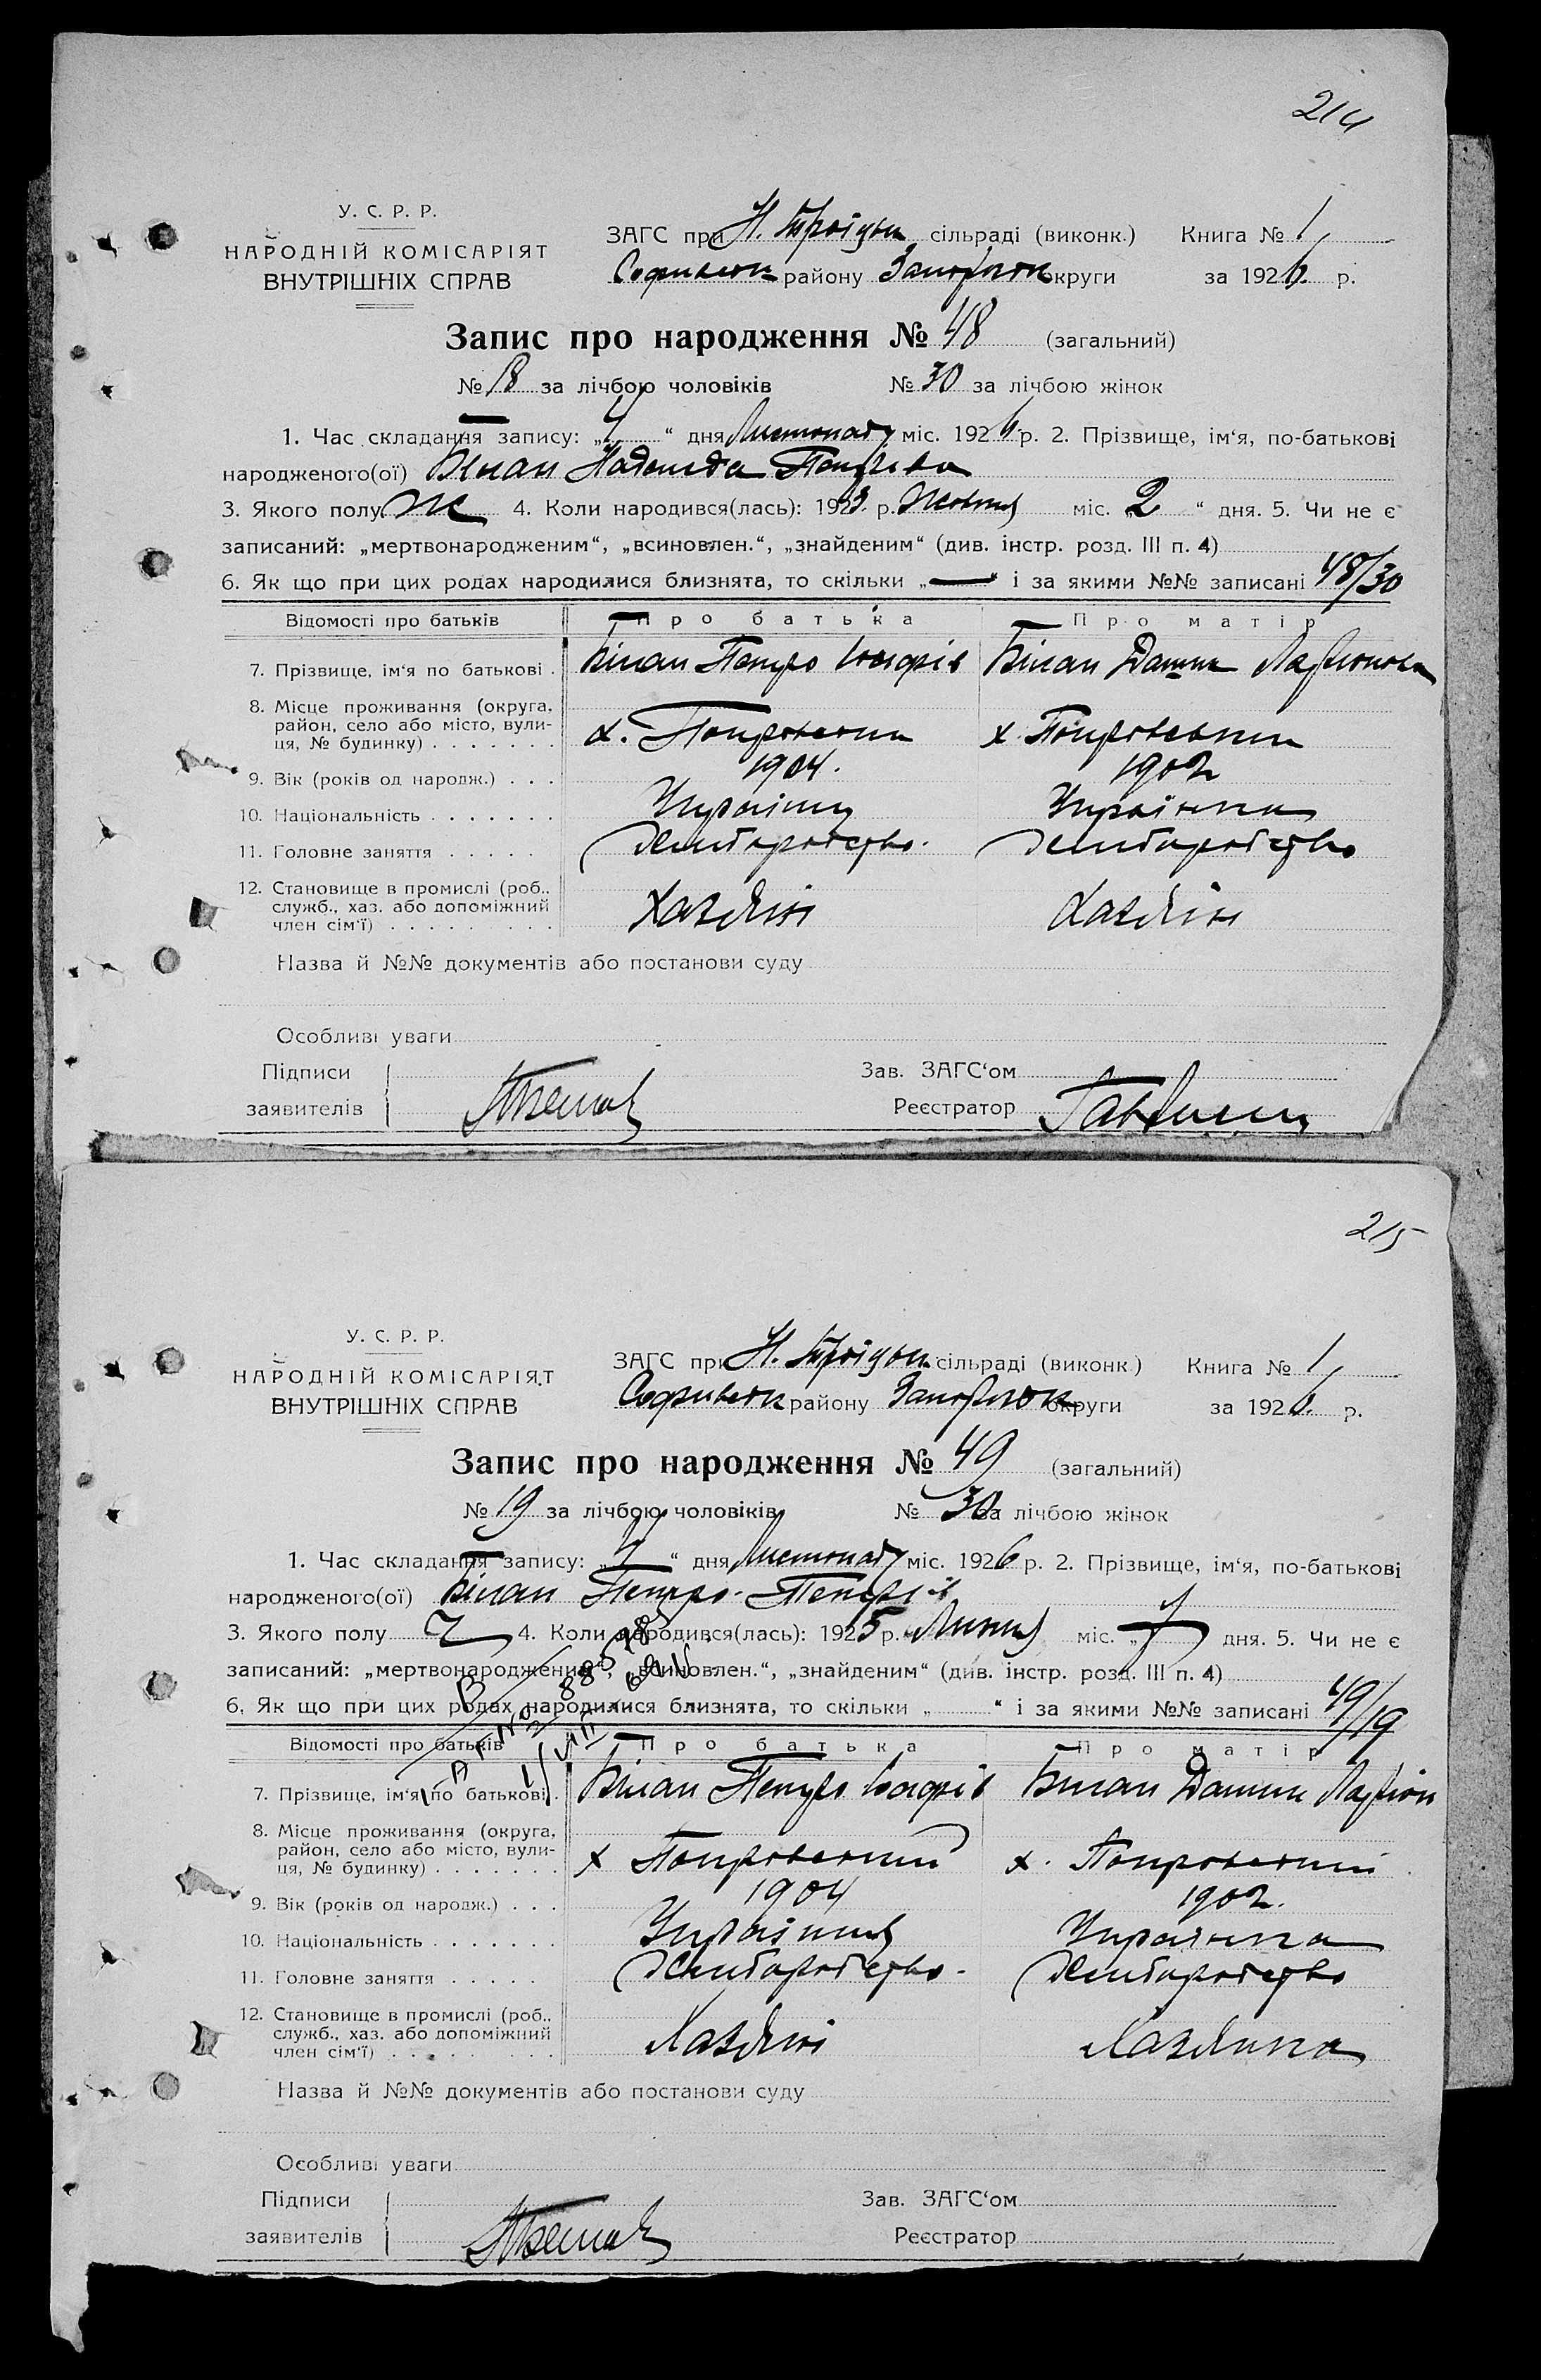 214
У. С. Р. Р.
НАРОДНІЙ КОМІСАРІЯТ
ВНУТРІШНІХ СПРАВ
ЗАГС при Н. Троіцьк сільраді (виконк.) Книга № 1
Софиевск району Запорізьк округи за 1926 р.
Запис про народження № 48 (загальний)
№ 18 за лічбою чоловіків № 30 за лічбою жінок
1. Час складання запису: „4“ дня Листопаду міс. 1926 р. 2. Прізвище, ім‘я, по-батькові
народженого(ої) Білан Надежда Петрівна
3. Якого полу Ж 4. Коли народився(лась): 1923 р. Жовтня міс. „2“ дня. 5. Чи не є
записаний: „мертвонародженим“, „всиновлен.“, „знайденим“ (див. інстр. розд. III п. 4)
6. Як що при цих родах народилися близнята, то скільки „—“ і за якими №№ записані 48/30
Відомості про батьків Про батька Про матір
7. Прізвище, ім‘я по батькові . Білан Петро Білан
8. Місце проживання (округа,
район, село або місто, вули-
ця, № будинку) . . . . . . . х. Покровський х. Покровський
9. Вік (років од народж.) . . . 1904. 1902
10. Національність . . . . . . . Українец Українка
11. Головне заняття . . . . . Хліборобство. Хліборобство
12. Становище в промислі (роб.,
служб., хаз. або допоміжний
член сім‘ї) . . . . . . . . . Хазяін Хазяін
Назва й №№ документів або постанови суду
Особливі уваги
Підписи Зав. ЗАГС‘ом
заявителів Реєстратор
215
У. С. Р. Р.
НАРОДНІЙ КОМІСАРІЯТ
ВНУТРІШНІХ СПРАВ
ЗАГС при Н. Троіцьк сільраді (виконк.) Книга № 1
Софиевск району Запорізьк округи за 1926 р.
Запис про народження № 49 (загальний)
№ 19 за лічбою чоловіків № 30 за лічбою жінок
1. Час складання запису: „4“ дня Листопаду міс. 1926 р. 2. Прізвище, ім‘я, по-батькові
народженого(ої) Білан Петро Петрів
3. Якого полу Ч 4. Коли народився(лась): 1925 р. Липня міс. „ дня. 5. Чи не є
записаний: „мертвонародженим“, „всиновлен.“, „знайденим“ (див. інстр. розд. III п. 4)
6. Як що при цих родах народилися близнята, то скільки „ “ і за якими №№ записані 49/19
Відомості про батьків Про батька Про матір
7. Прізвище, ім‘я по батькові . Білан Петро Білан
8. Місце проживання (округа,
район, село або місто, вули-
ця, № будинку) . . . . . . . х Покровський х. Покровський
9. Вік (років од народж.) . . . 1904 1902.
10. Національність . . . . . . . Українец Українка
11. Головне заняття . . . . . Хліборобство. Хліборобство
12. Становище в промислі (роб.,
служб., хаз. або допоміжний
член сім‘ї) . . . . . . . . . Хазяін Хазяйка
Назва й №№ документів або постанови суду
Особливі уваги
Підписи Зав. ЗАГС‘ом
заявителів Реєстратор